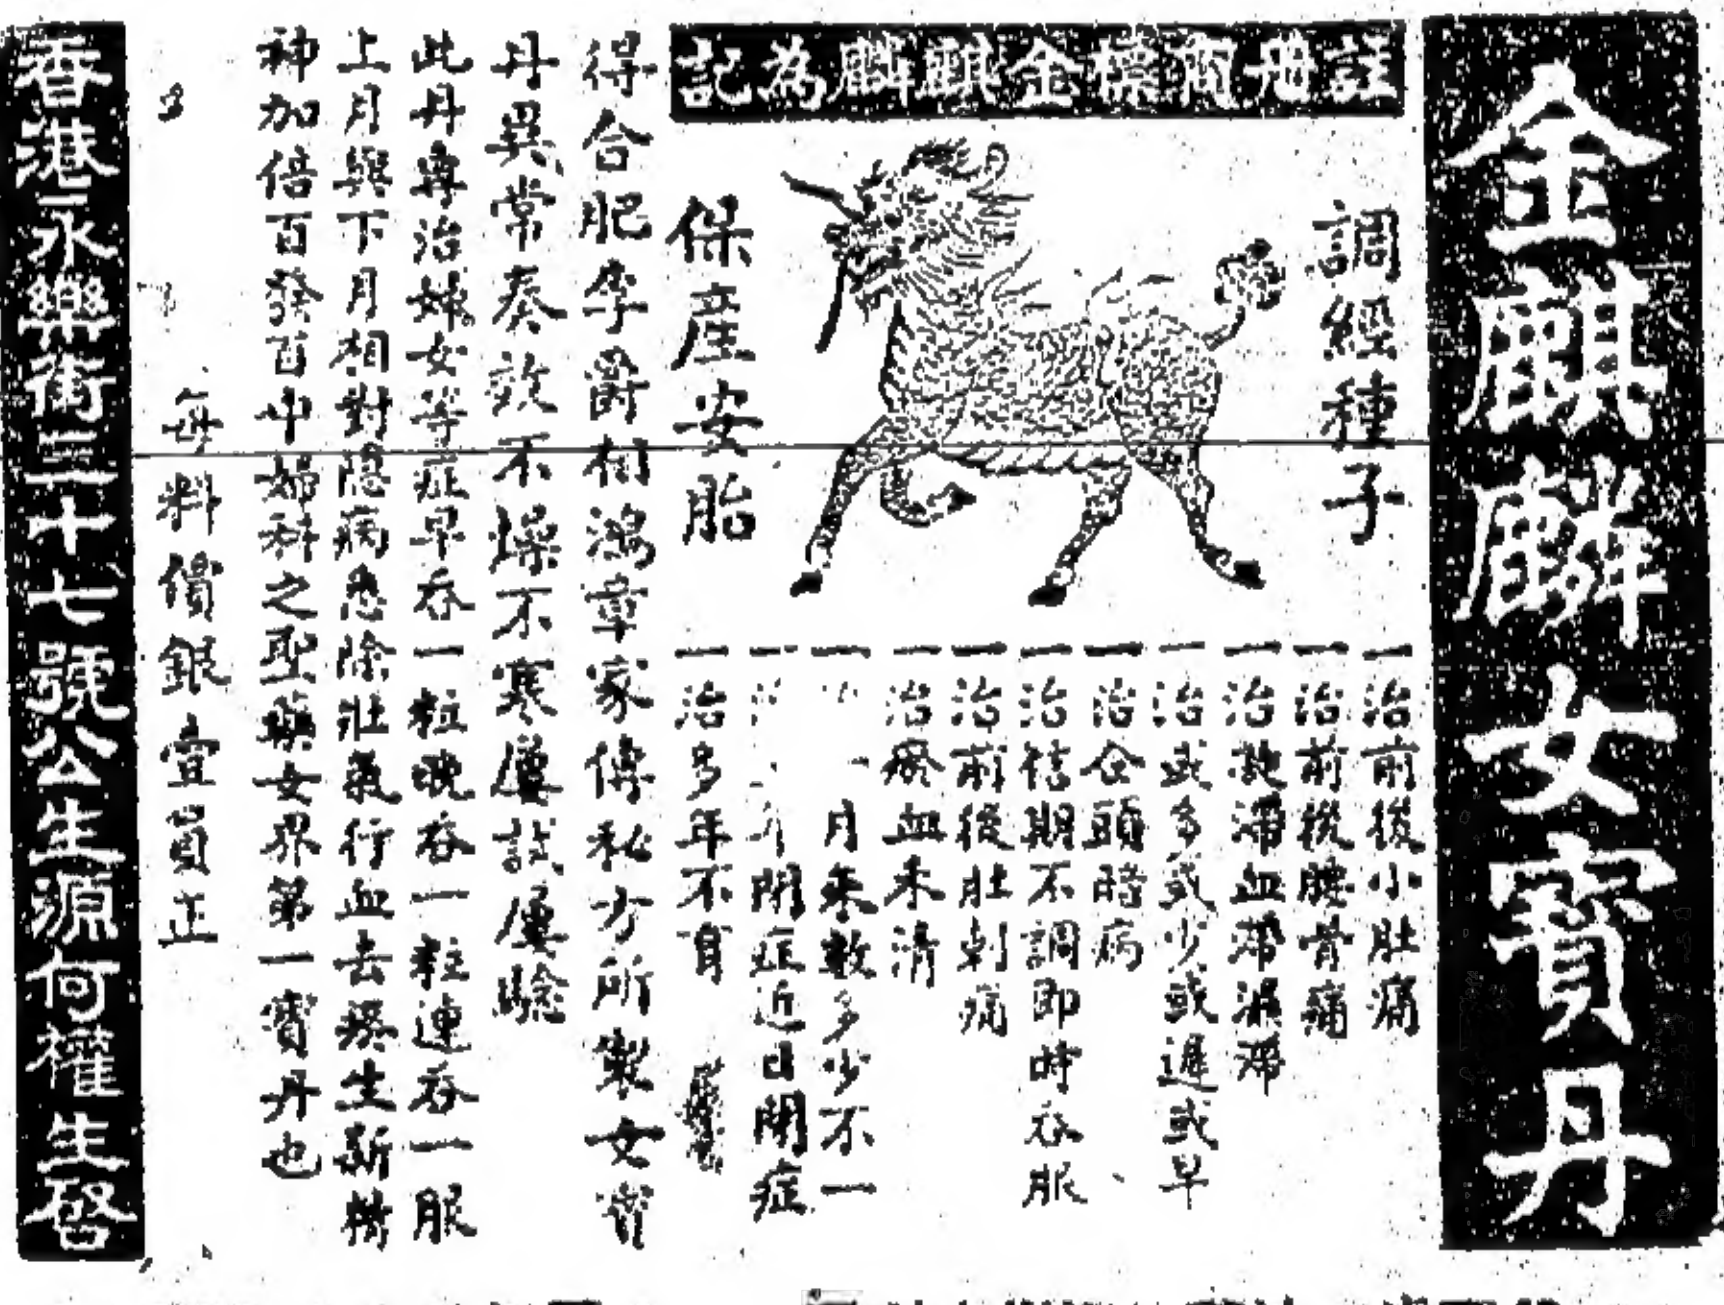 金麒麟女寶丹
註册商標金麒麟為記
調經種子
保產安胎
一治前後小肚痛
一治前後腰骨痛
一治滯血帶濕滯
一治或多或少或遲或早
一治仓頭時病
一治信期不調即時吞服
一治前後肚刺痛
一治瘀血未清
一月來數多少不一
一閉症近日閉症
一治多年不育
得合肥李爵相鴻章家傳私方所製女寶
丹異常奏效不燥不寒屢試屢驗
此丹專治婦女等症早吞一粒晚吞一粒連吞一服
上月與下月相對隱病悉除壯氣行血去瘀生新精
神加倍百發百中婦科之聖藥女界第一寶丹也
每料價銀壹員正
香港永樂街三十七號公生源何權生啓